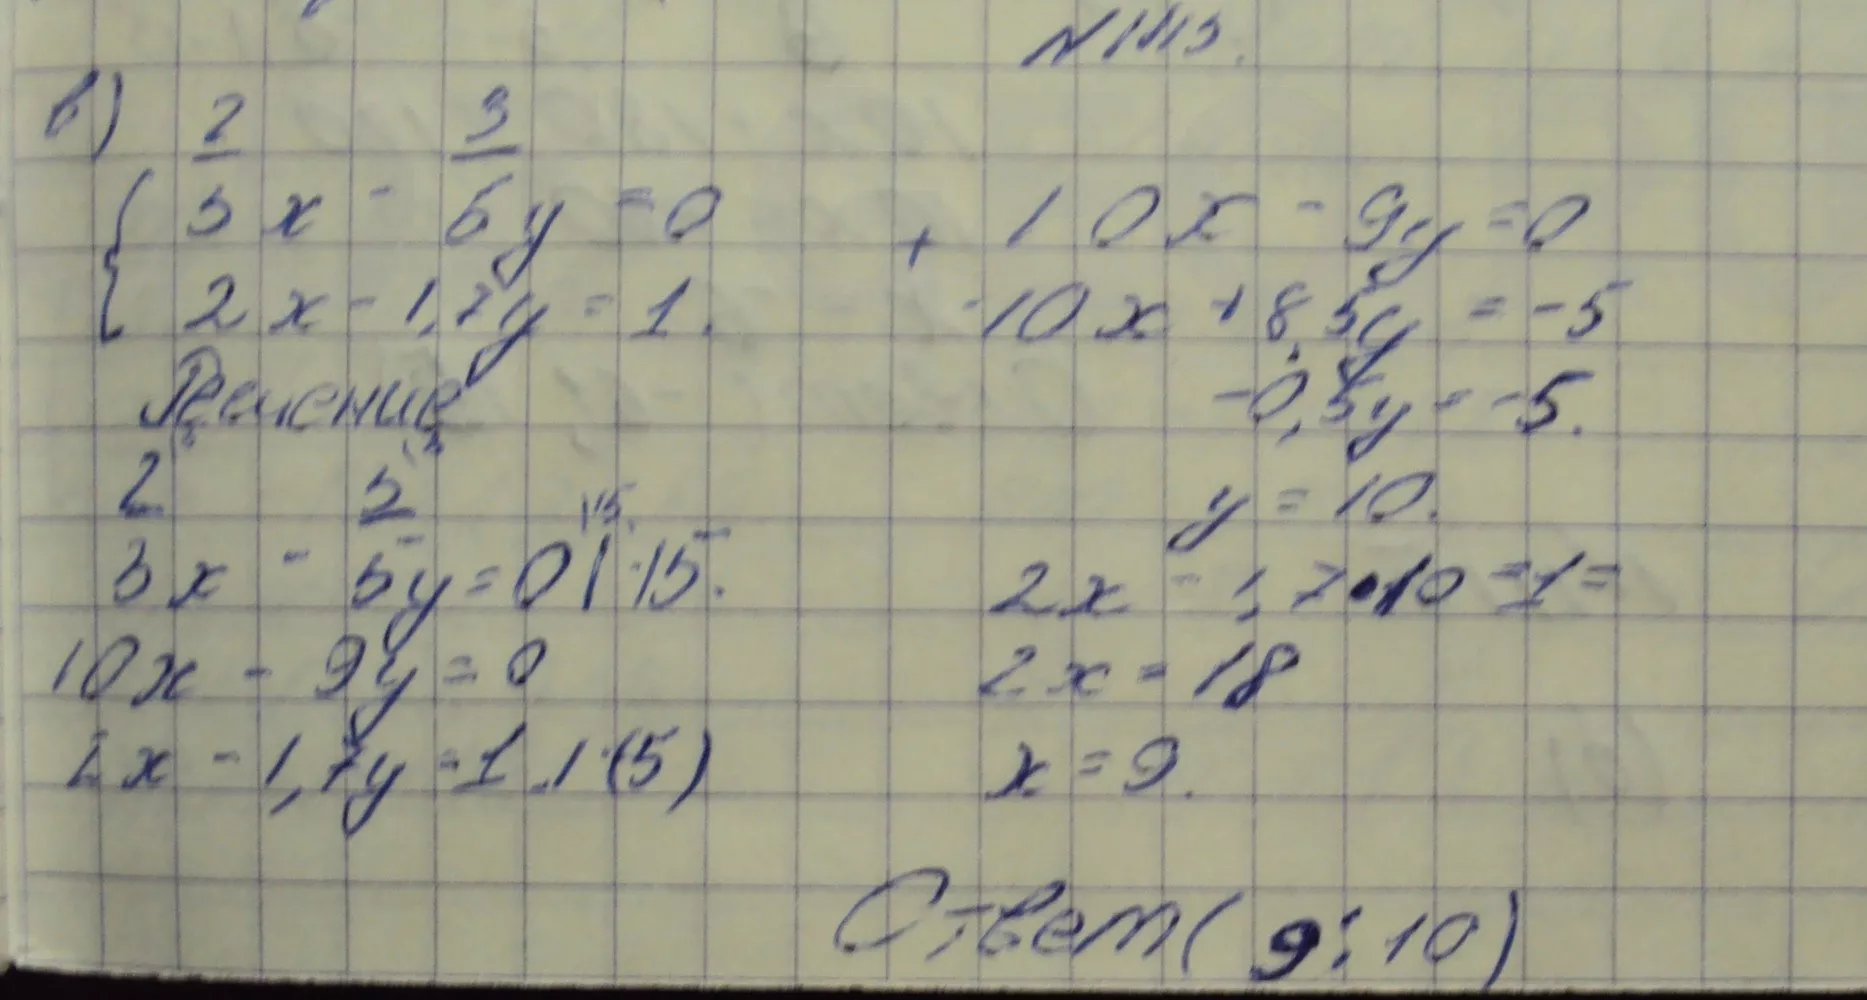 N 1113.
в) 2/3 x - 3/5 y = 0
2x - 1,7y = 1.
Решение
2/3 x - 3/5 y = 0 | · 15.
10x - 9y = 0
2x - 1,7y = 1 . | · (5)
+ 10x - 9y = 0
-10x + 8,5y = -5
-0,5y = -5.
y = 10.
2x - 1,7 • 10 = 1 =
2x = 18
x = 9.
Ответ (9 ; 10)